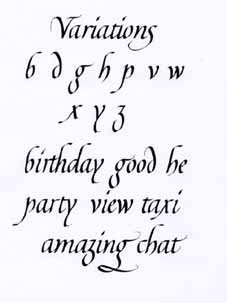 Variations
b d g h p v w
x y z
birthday good he
party view taxi
amazing chat